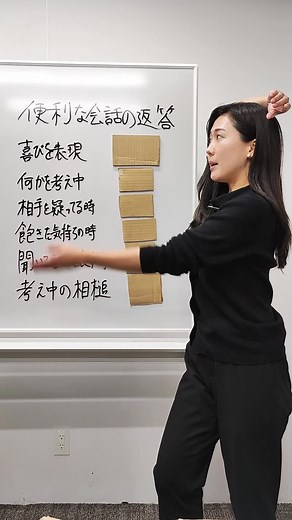 便利な会話の返答
喜びを表現
何かを考え中
相手を疑ってる時
飽きた気持ちの時
聞
考え中の相槌